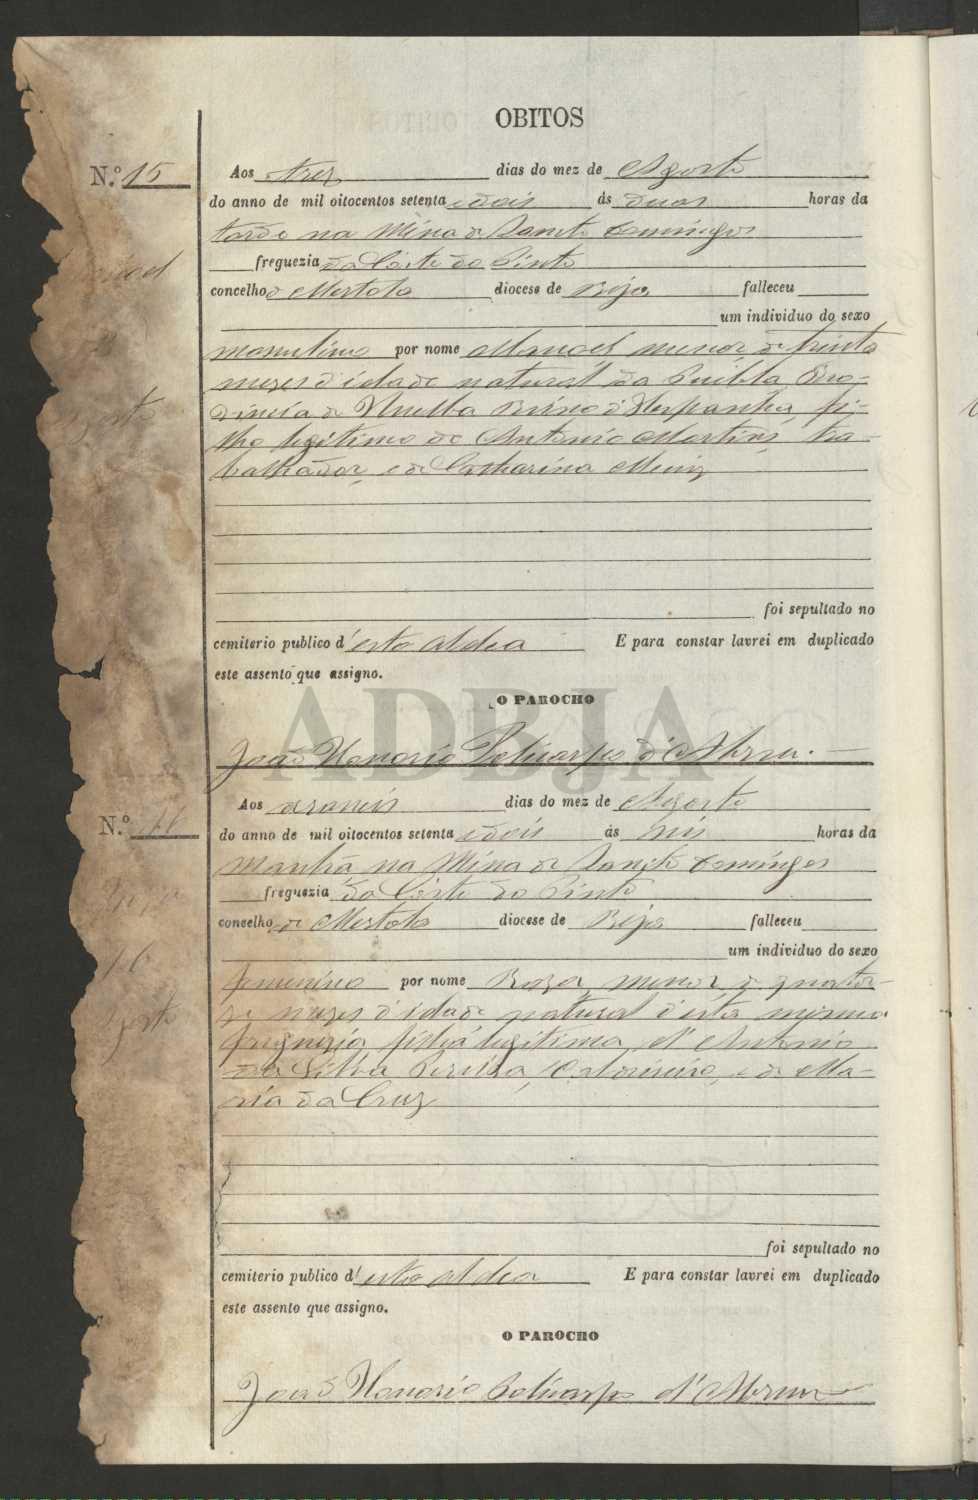 OBITOS
N.º 15
Aos trez dias do mez de Agosto
do anno de mil oitocentos setenta e dois ás duas horas da
tarde na Mina de Sancto Domingos
freguezia da Côrte do Pinto
concelho de Mertola diocese de Beja falleceu
um individuo do sexo
masculino por nome Manoel menor, de trinta
mezes d'idade natural da Puebla, Pro-
vincia de Huelba Reino d'Hespanha, fi-
lho legitimo de Antonio Martins, tra-
balhador, e de Catharina Muniz
foi sepultado no
cemiterio publico d'esta aldea E para constar lavrei em duplicado
este assento que assigno.
O PAROCHO
João Honorio Policarpo d'Abreu.
ADBJA
N.º 16
Aos dias do mez de Agosto
do anno de mil oitocentos setenta e dois ás seis horas da
manhã, na Mina de Sancto Domingos
freguezia da Côrte do Pinto
concelho de Mertola diocese de Beja falleceu
um individuo do sexo
femenino por nome Roza, menor de quator-
ze mezes d'idade natural d'esta mesma
freguezia filha legitima d'Antonio
da Silva Pereira, e de Ma-
ria da Cruz
16
foi sepultado no
cemiterio publico d'esta aldea E para constar lavrei em duplicado
este assento que assigno.
O PAROCHO
João Honorio Policarpo d'Abreu